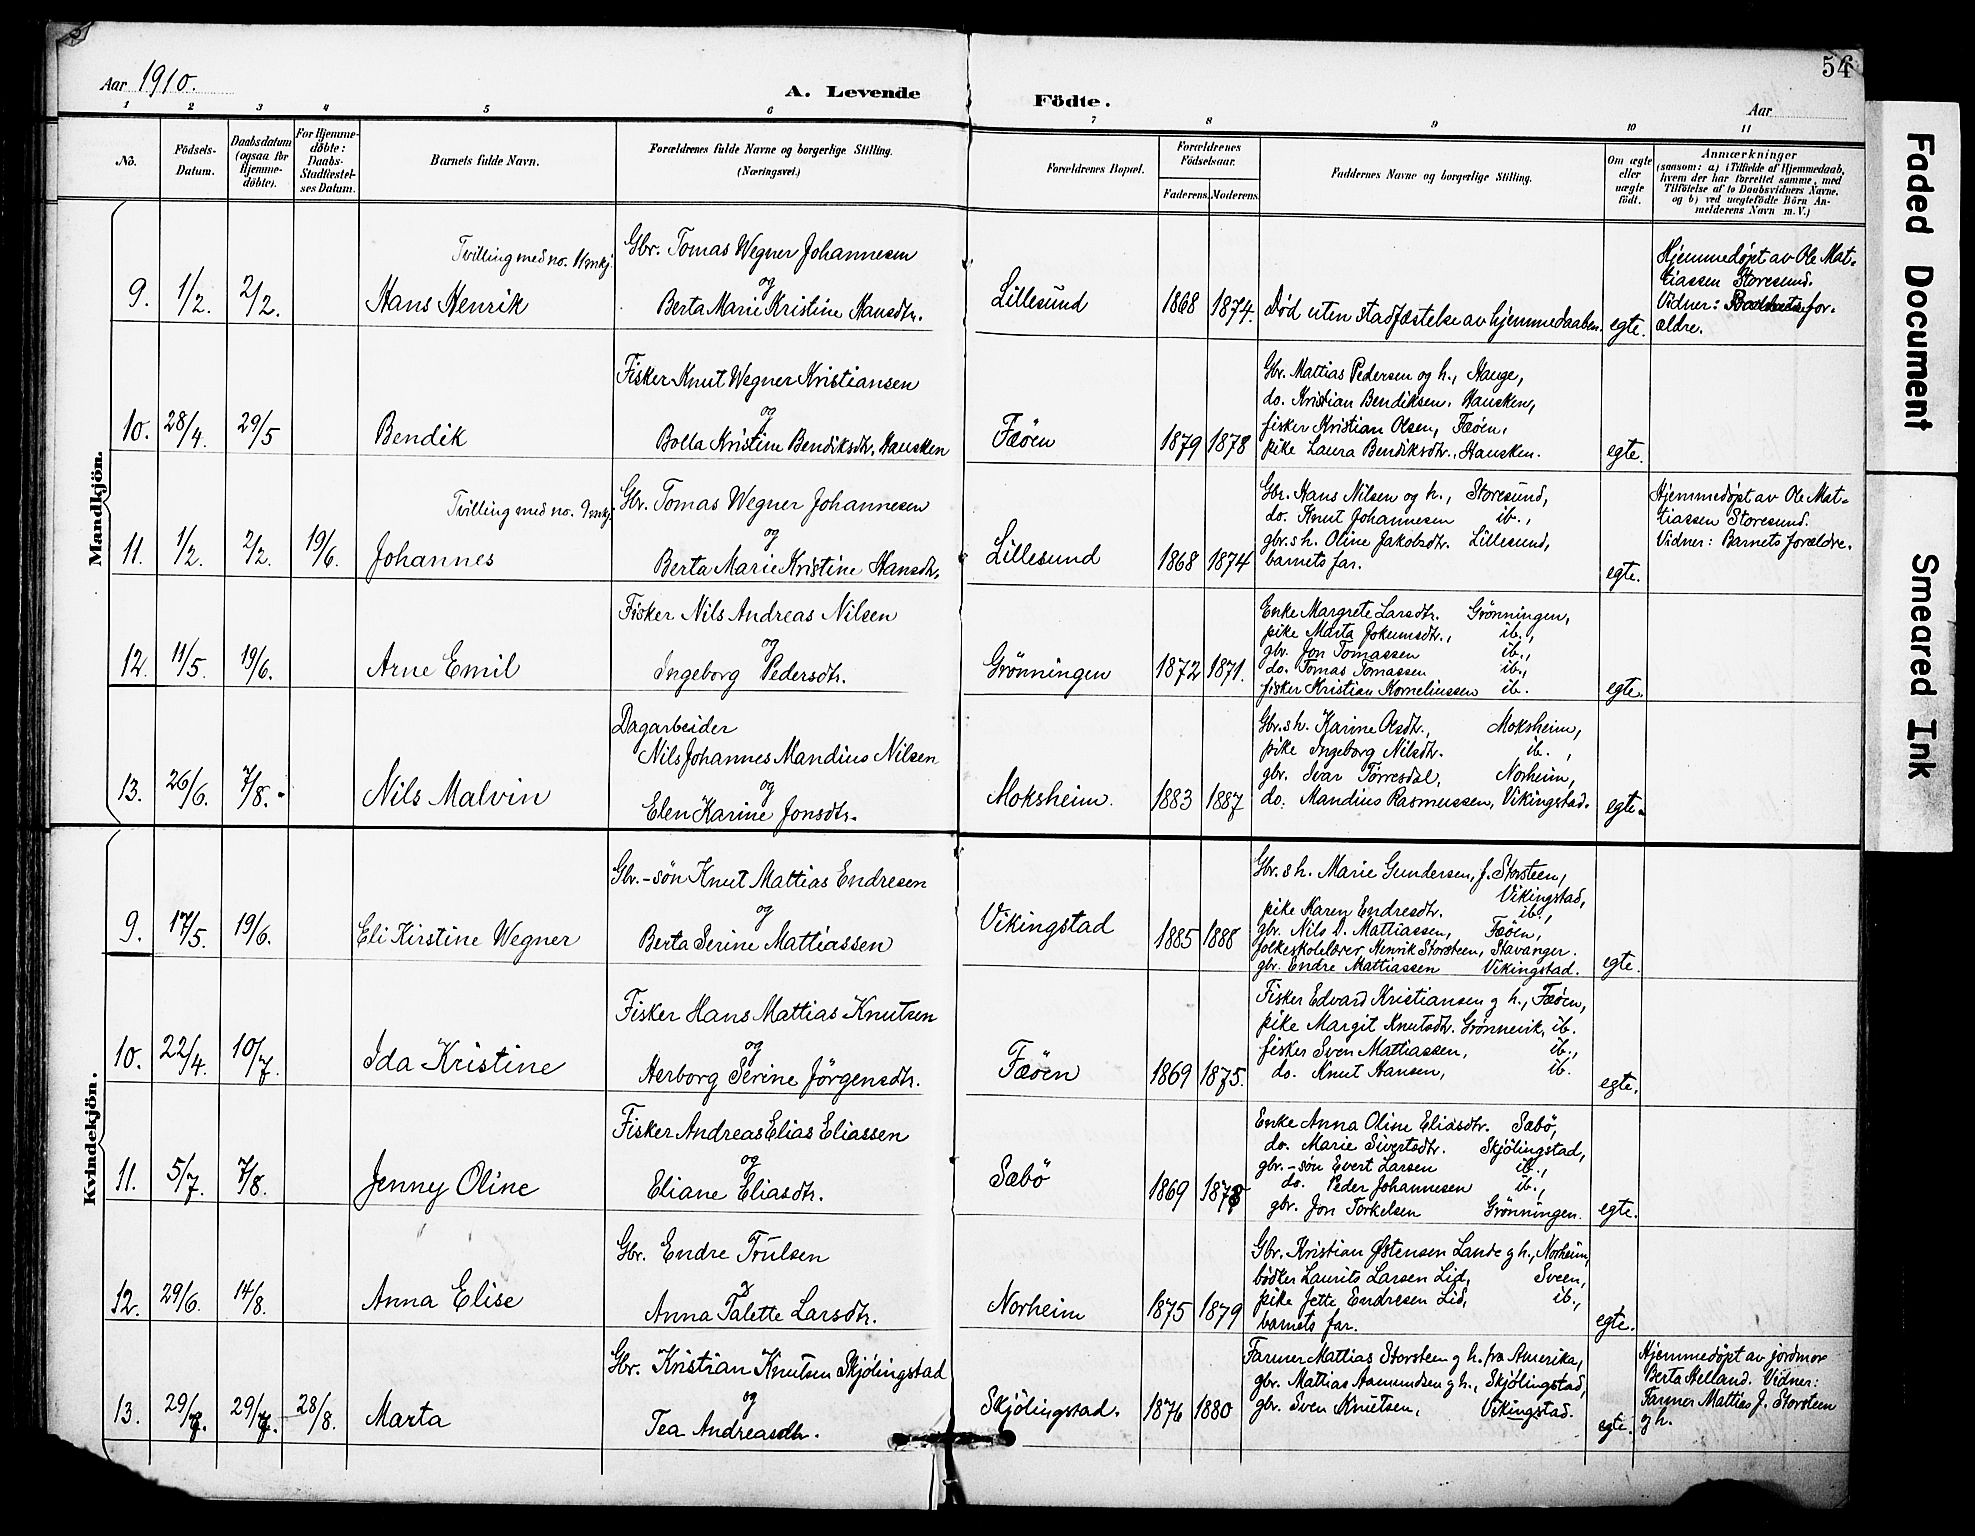 54
Aar 1910.
A. Levende Födte.
Aar
1 2 3 4 5 6 7 8 9 10 11
No.
Födsels-
Datum.
Daabsdatum
(ogsaa for
Hjemme-
döbte).
For Hjemme-
döbte:
Daabs-
Stadfæstel-
ses Datum.
Barnets fulde Navn.
Forældrenes fulde Navne og borgerlige Stilling.
(Næringsvei.)
Forældrenes Bopæl.
Forældrenes
Födselsaar.
Faderens. Moderens.
Faddernes Navne og borgerlige Stilling.
Om ægte
eller
uægte
født.
Anmærkninger
(saasom: a) i Tilfælde af Hjemmedaab,
hvem der har forrettet samme, med
Tilföielse af to Daabsvidners Navne,
og b) ved uægtefödte Börn An-
melderens Navn m. V.)
Mandkjön.
9. 1/2. 2/2.
Tvilling med no. 11 mkj.
Hans Henrik
Gbr. Tomas Wegner Johannesen
og
Berta Marie Kristine Hansdtr.
Lillesund
1868 1874.
Död uten stadfæstelse av hjemmedaaben.
egte.
Hjemmedøpt av Ole Mat-
tiassen Storesund.
Vidner: Barnets for-
ældre.
10. 28/4. 29/5
Bendik
Fisker Knut Wegner Kristiansen
og
Bolla Kristine Bendiksdtr. Hausken
Fæöen
1879 1878
Gbr. Mattias Pedersen og h., Hauge,
do. Kristian Bendiksen, Hausken,
fisker Kristian Olsen, Fæöen,
pike Laura Bendiksdtr., Hausken.
egte.
11. 1/2. 2/2. 19/6.
Tvilling med no. 9 mkj.
Johannes
Gbr. Tomas Wegner Johannesen
og
Berta Marie Kristine Hansdtr.
Lillesund
1868 1874
Gbr. Hans Nilsen og h., Storesund,
do. Knut Johannesen ib.,
gbr.s h. Oline Jakobsdtr. Lillesund,
barnets far.
egte.
Hjemmedøpt av Ole Mat-
tiassen Storesund.
Vidner: Barnets forældre.
12. 11/5. 19/6.
Arne Emil
Fisker Nils Andreas Nilsen
og
Ingeborg Pedersdtr.
Grönningen
1872 1871.
Enke Margrete Larsdtr. Grönningen,
pike Marta Jokumsdtr., ib.,
gbr. Jon Tomassen ib.,
do. Tomas Tomassen ib.,
fisker Kristian Korneliussen ib.
egte.
13. 26/6. 7/8.
Nils Malvin
Dagarbeider
Nils Johannes Mandius Nilsen
og
Elen Karine Jonsdtr.
Moksheim.
1883 1887
Gbr.s h. Karine Olsdtr., Moksheim,
pike Ingeborg Nilsdtr. ib.,
gbr. Ivar Tørresdal, Norheim,
do. Mandius Rasmussen, Vikingstad.
egte.
Kvindekjön.
9. 17/5. 19/6.
Eli Kirstine Wegner
Gbr.-sön Knut Mattias Endresen
og
Berta Serine Mattiassen
Vikingstad
1885 1888
Gbr.s h. Marie Gundersen, f. Storsteen,
Vikingstad,
pike Karen Endresdtr. ib.,
gbr. Nils D. Mattiassen, Fæöen,
folkeskolelærer Henrik Storsteen, Stavanger.
gbr. Endre Mattiassen Vikingstad.
egte.
10. 22/4. 10/7.
Ida Kristine
Fisker Hans Mattias Knutsen
og
Herborg Serine Jörgensdtr.
Fæöen
1869 1875.
Fisker Edvard Kristiansen g h., Fæöen,
pike Margit Knutsdtr. Grönnevik, ib.
fisker Sven Mattiassen, ib.,
do. Knut Hansen, ib.
egte.
11. 5/7. 7/8.
Jenny Oline
Fisker Andreas Elias Eliassen
og
Eliane Eliasdtr.
Sæbö
1869 1878
Enke Anna Oline Eliasdtr. Sæbö,
do. Marie Sivertsdtr. Skjölingstad,
gbr.-sön Evert Larsen ib.,
do. Peder Johannesen ib.,
gbr. Jon Torkelsen Grönningen.
egte.
12. 29/6. 14/8.
Anna Elise
Gbr. Endre Trulsen
&
Anna Talette Larsdtr.
Norheim
1875 1879
Gbr. Kristian Østensen Lande g h., Norheim,
bödker Laurits Larsen Lid, Sveen,
pike Jette Endresen Lid, ib.,
barnets far.
egte.
13. 29/7. 29/7. 28/8.
Marta
Gbr. Kristian Knutsen Skjölingstad
og
Tea Andreasdtr.
Skjölingstad.
1876 1880
Farmer Mattias Storsteen g h. fra Amerika,
gbr. Mattias Aamundsen g h., Skjölingstad,
gbr. Sven Knutsen, Vikingstad.
egte.
Hjemmedøpt av jordmor
Berta Helland. Vidner:
Farmer Mattias J. Storsteen
g h.
Faded Document
Smeared Ink